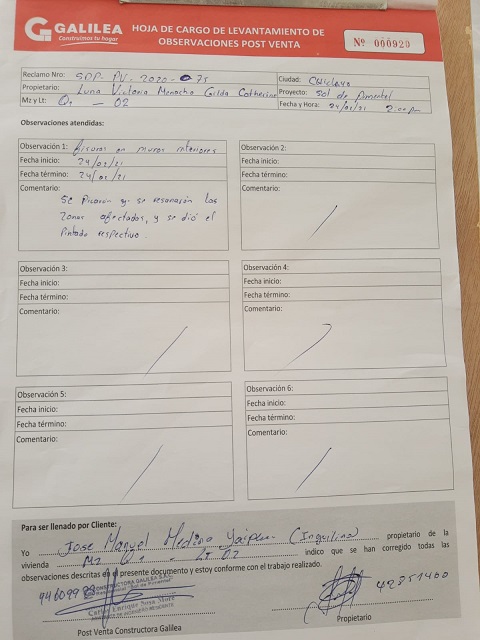 GALILEA
Construimos tu hogar
HOJA DE CARGO DE LEVANTAMIENTO DE
OBSERVACIONES POST VENTA
Nº 000929
Reclamo Nro: SDP-PV-2020-075
Ciudad: Chiclayo
Propietario: Luna Victoria Menacho Gilda Catherine
Proyecto: Sol de Pimentel
Mz y Lt: O2 - 02
Fecha y Hora: 24/02/21 2:00 pm
Observaciones atendidas:
Observación 1: Fisuras en muros interiores
Fecha inicio: 24/02/21
Fecha término: 24/02/21
Comentario:
se picaron y se resanaron las
zonas afectadas, y se dió el
Pintado respectivo.
Observación 2:
Fecha inicio:
Fecha término:
Comentario:
Observación 3:
Fecha inicio:
Fecha término:
Comentario:
Observación 4:
Fecha inicio:
Fecha término:
Comentario:
Observación 5:
Fecha inicio:
Fecha término:
Comentario:
Observación 6:
Fecha inicio:
Fecha término:
Comentario:
Para ser llenado por Cliente:
Yo Jose Manuel Medina (Inquilino) propietario de la
vivienda indico que se han corregido todas las
observaciones descritas en el presente documento y estoy conforme con el trabajo realizado.
CONSTRUCTORA GALILEA S.A.C.
Carlos Enrique Sosa
42851460
Post Venta Constructora Galilea
Propietario